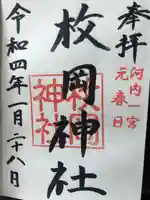 奉拝
河内一宮
元春日
枚岡神社
令和四年一月二十八日